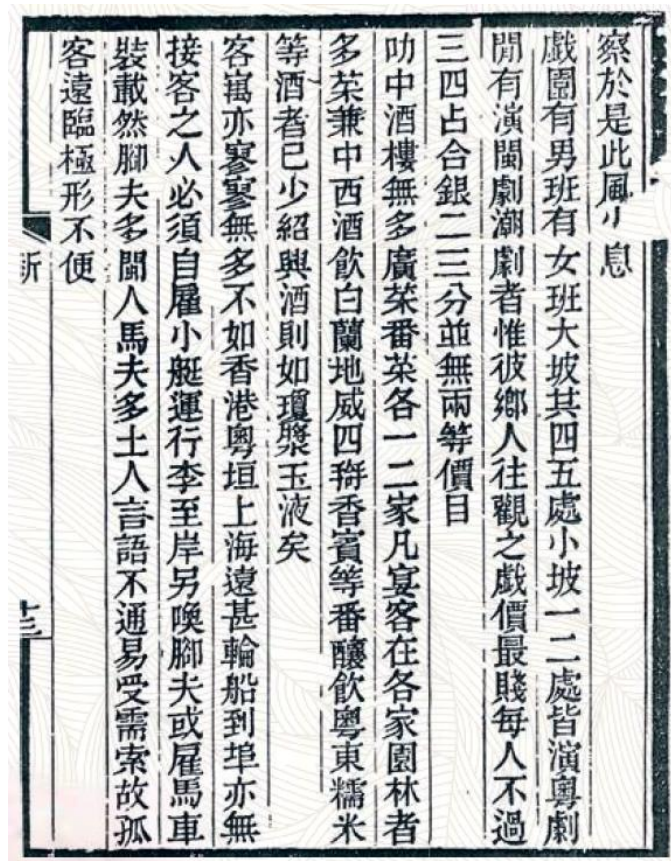 察於是此風小息
戲園有男班有女班大坡共四五處小坡一二處皆演粵劇
閒有演閩劇潮劇者惟彼鄉人往觀之戲價最賤每人不過
三四占合銀二三分並無兩等價目
叻中酒樓無多廣菜番菜各一二家凡宴客在各家園林者
多菜兼中西酒飲白蘭地威四猗香賓等番釀飲粵東糯米
等酒者已少紹興酒則如瓊漿玉液矣
客寓亦寥寥無多不如香港粵垣上海遠甚輪船到埠亦無
接客之人必須自雇小艇運行李至岸另喚腳夫或雇馬車
裝載然腳夫多閩人馬夫多土人言語不通易受需索故孤
客遠臨極形不便
新
十三